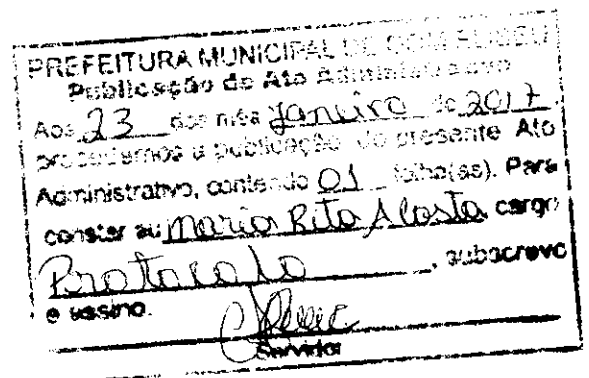 PREFEITURA MUNICIPAL DE DOM ELISEU
Publicação de Ato Administrativo
Aos 23 dos mês Janeiro de 2017,
procedemos a publicação do presente Ato
Administrativo, contendo 01 folha(as). Para
constar eu Maria Rita Acosta cargo
Protocolo, subscrevo
e assino.
Servidor